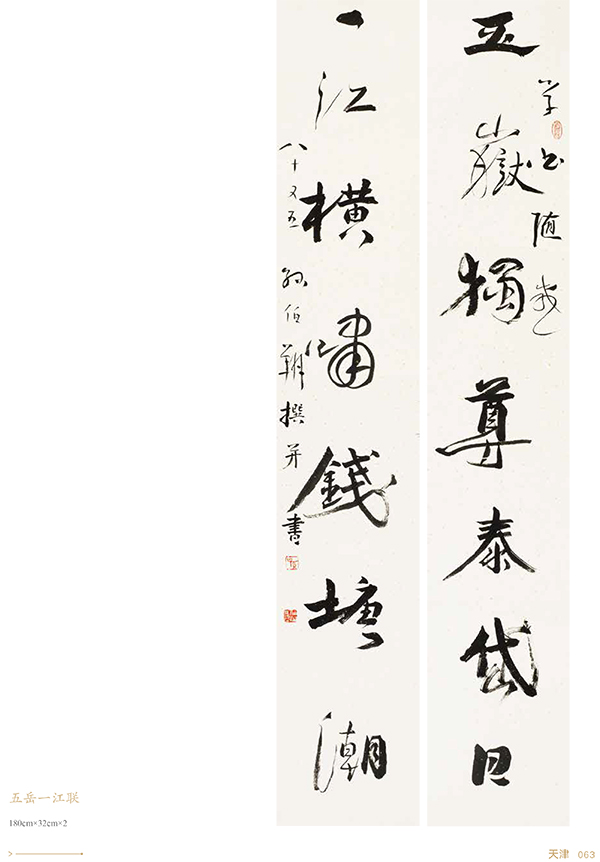 五嶽獨尊泰岱日
学书随感
一江橫嘯錢塘潮
八十又五 孙伯翔撰并書
五岳一江联
180cm×32cm×2
天津 063